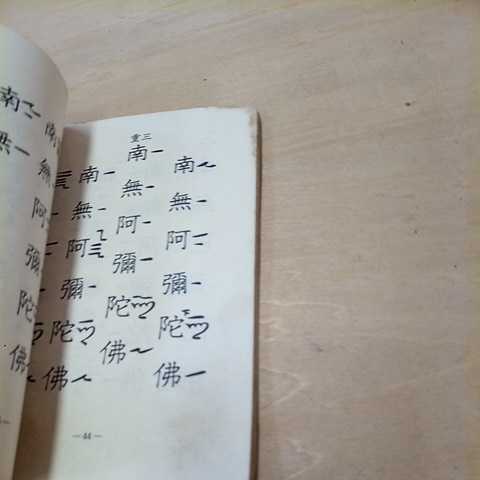 三重
南無阿彌陀佛
南無阿彌陀佛
南無阿彌陀佛
—44—
南無阿彌陀佛
南無